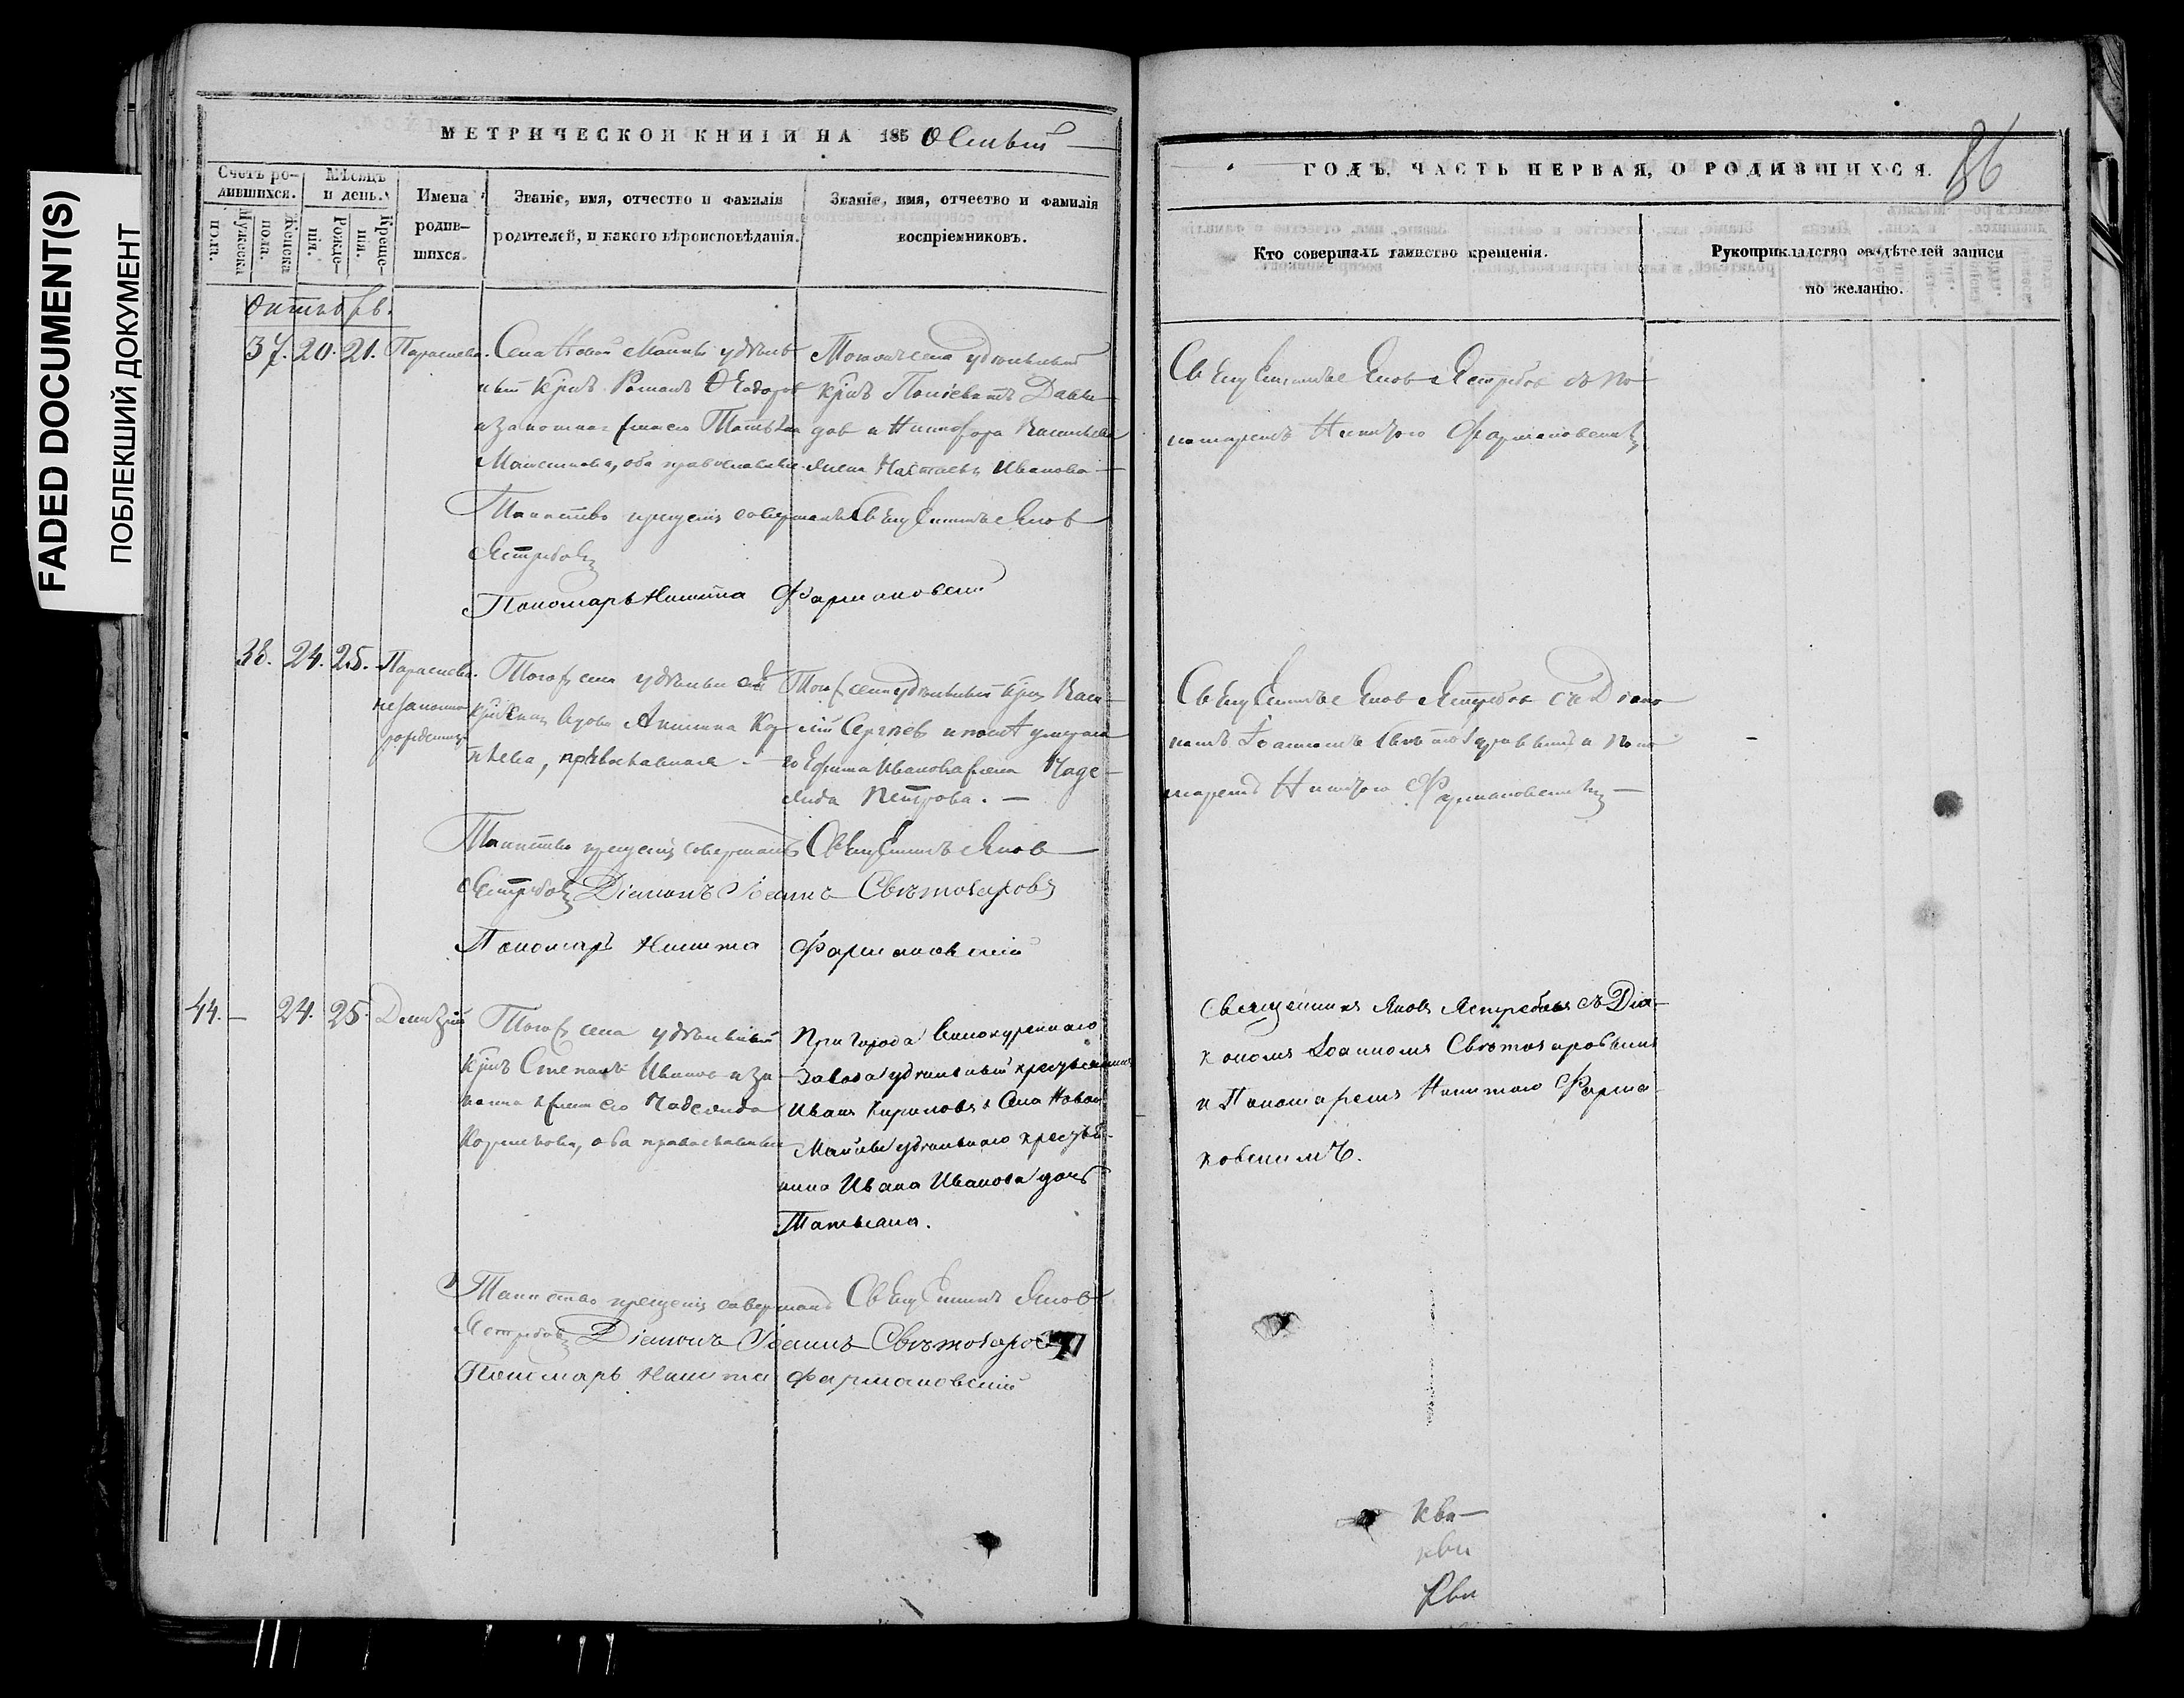 FADED DOCUMENT(S)
ПОБЛЕКШИЙ ДОКУМЕНТ
МЕТРИЧЕСКОЙ КНИГИ НА 1858
Счетъ ро-
дившихся.
Мѣсяцъ
и день.
Мужеска
пола.
Женска
пола.
Рожде-
нія.
Креще-
нія.
Имена
родив-
шихся.
Званіе, имя, отчество и фамилія
родителей, и какого вѣроисповѣданія.
Званіе, имя, отчество и фамилія
воспріемниковъ.
Октябрь.
37. 20. 21. Параскева.
Села Новой Майны удѣль-
ный Крнъ Романъ Ѳеодоров
и законная жена его Татьяна
оба православные.
Тогожъ села удѣльный
Крнъ Давы-
дов и Никифора Васильева
жена Настасья Иванова
Таинство крещенія совершалъ Священникъ Яков
Ястребовъ
Пономарь Никита Фармаковскій
38. 24. 25. Параскева.
незаконно
рожденная
Тогожъ села удѣльный
вдова Акилина
православная.
Тогожъ села удѣльный Крнъ Васи-
лій Сергѣев и
Ефима Иванова жена Наде-
жда Петрова.
Таинство крещенія совершалъ Священникъ Яков
Ястребовъ Діаконъ Іоаннъ Свѣтозаровъ
Пономарь Никита Фармаковскій
44. — 24. 25. Димитрій
Тогожъ села удѣльный
Крнъ Степанъ Иванов и за-
конная жена его Надежда
оба православные
Пригорода Винокуреннаго
завода удѣльный крестьянинъ
Иванъ Кириловъ и Села Новой
Майны удѣльнаго крестья-
нина Ивана Иванова дочь
Татьяна.
Таинство крещенія совершалъ Священникъ Яков
Ястребовъ Діаконъ Іоаннъ Свѣтозаровъ
Пономарь Никита Фармаковскій
ГОДЪ, ЧАСТЬ ПЕРВАЯ, О РОДИВШИХСЯ.
86
Кто совершалъ таинство крещенія.
Рукоприкладство свидѣтелей записи
по желанію.
Священникъ Яков Ястребов съ По-
номаремъ Никитою Фармаковскимъ
Священникъ Яков Ястребов съ Діако-
номъ Іоанномъ Свѣтозаровымъ и Поно-
маремъ Никитою Фармаковскимъ
Священникъ Яковъ Ястребовъ съ Діа-
кономъ Іоанномъ Свѣтозаровымъ
и Пономаремъ Никитою Фарма-
ковскимъ.